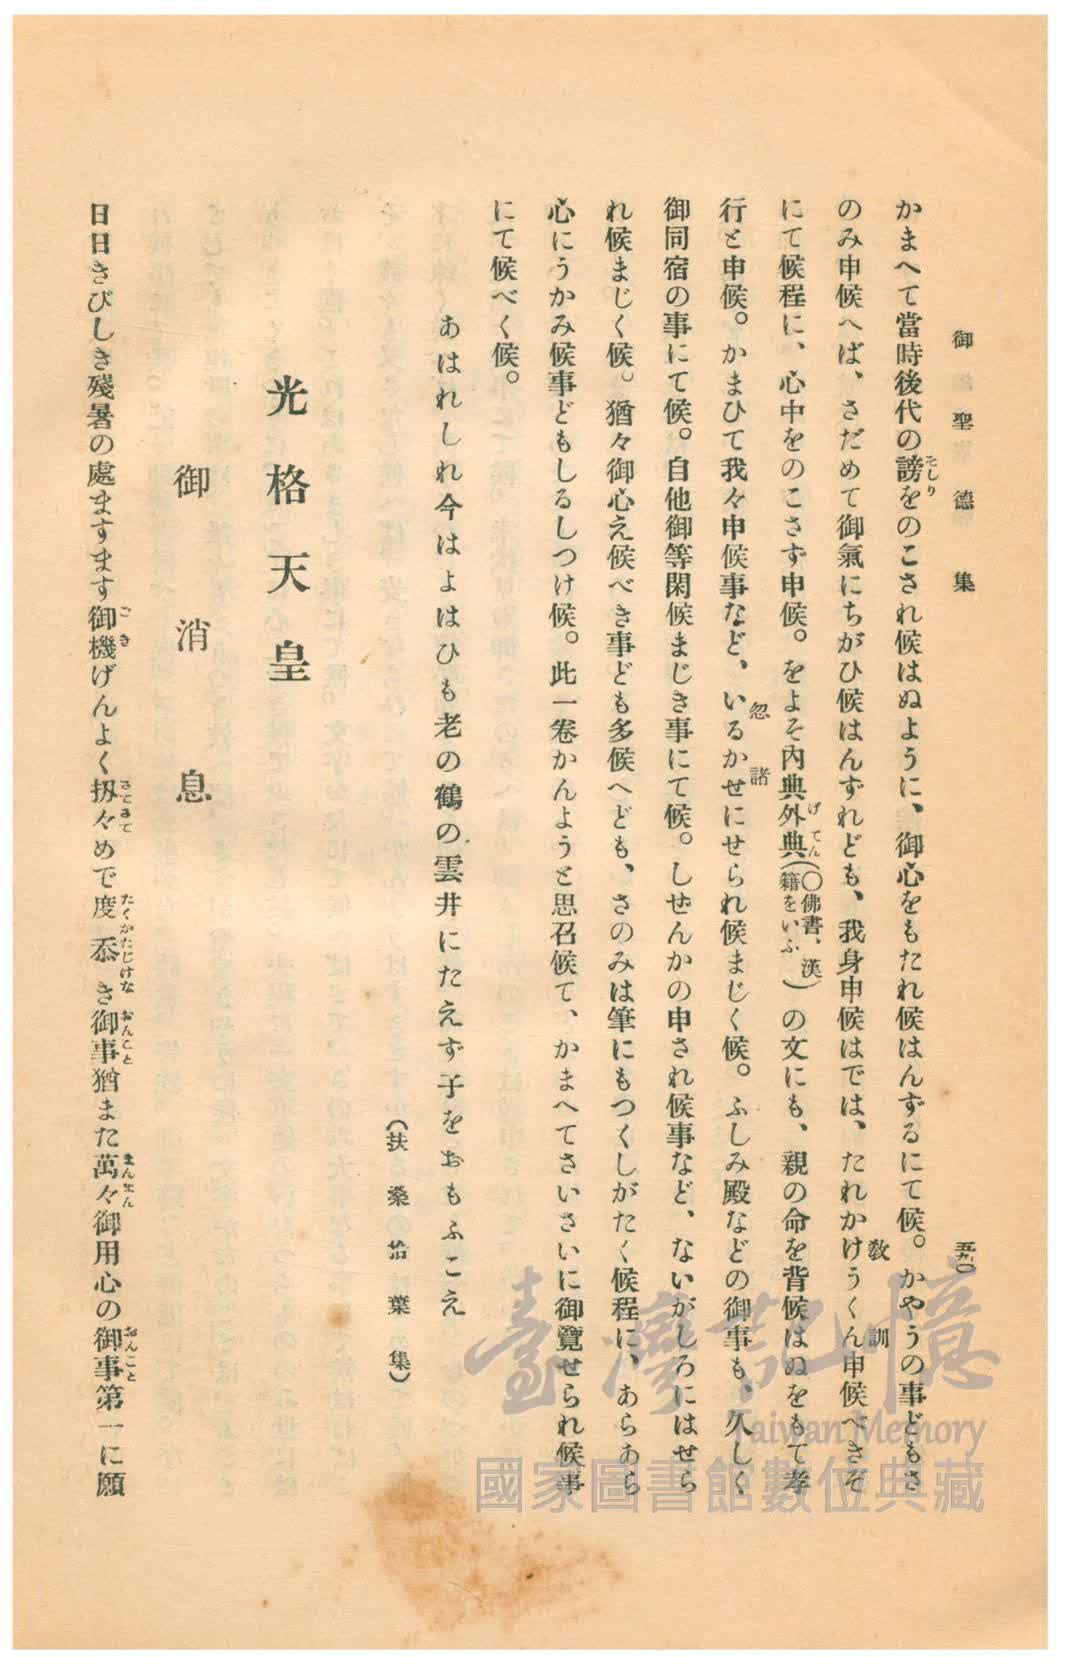 御聖德集
五九〇
かまへて當時後代の謗をのこされ候はぬように、御心をもたれ候はんずるにて候。かやうの事どもさ
そしり
のみ申候へば、さだめて御氣にちがひ候はんずれども、我身申候はでは、たれかけうくん申候べきぞ
敎訓
にて候程に、心中をのこさず申候。をよそ內典外典(〇佛書、漢籍をいふ)の文にも、親の命を背候はぬをもて孝
げてん
行と申候。かまひて我々申候事など、いるかせにせられ候まじく候。ふしみ殿などの御事も、久しく
忽諸
御同宿の事にて候。自他御等閑候まじき事にて候。しぜんかの申され候事など、ないがしろにはせら
れ候まじく候。猶々御心え候べき事ども多候へども、さのみは筆にもつくしがたく候程に、あらあら
心にうかみ候事どもしるしつけ候。此一卷かんようと思召候て、かまへてさいさいに御覽せられ候事
にて候べく候。
あはれしれ今はよはひも老の鶴の雲井にたえず子をおもふこえ
(扶桑拾葉集)
光格天皇
御消息
日日きびしき殘暑の處ますます御機げんよく扨々めで度忝き御事猶また萬々御用心の御事第一に願
ごき
さてさて
たくかたじけな
おんこと
まんまん
おんこと
臺灣記憶
Taiwan Memory
國家圖書館數位典藏